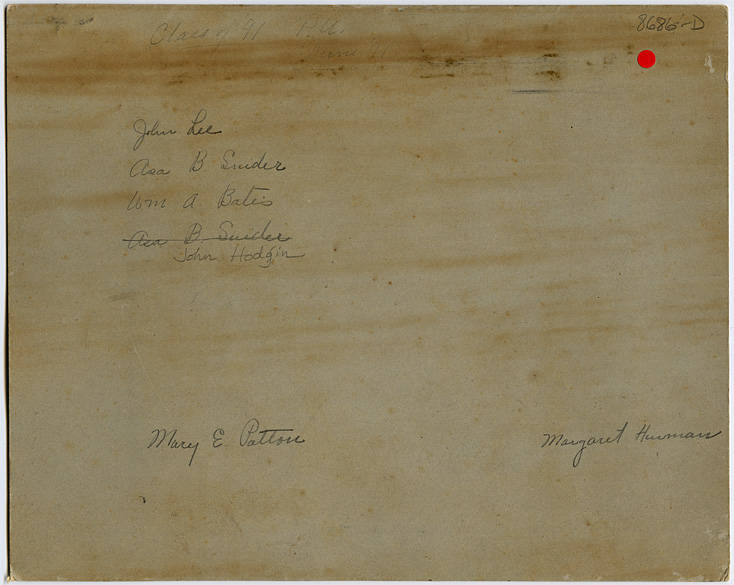 8686-D
Class of '91 P.U.
John Lee
Asa B Snider
Wm A Bates
Asa B. Snider
John Hodgin
Mary E Patton
Margaret